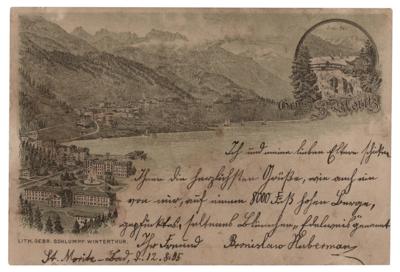 Gruss aus St. Moritz
Ich und meine lieben Eltern schicken
Ihnen die herzlichsten Grüße, wie auch ein
von mir, auf einem 8000 Fuß hohen Berge,
gepflücktes, seltenes Blümchen, Edelweis genannt
Ihr Freund Bronislaw Huberman
LITH. GEBR. SCHLUMPF, WINTERTHUR.
St. Moritz-Bad, d. 12. 8 95